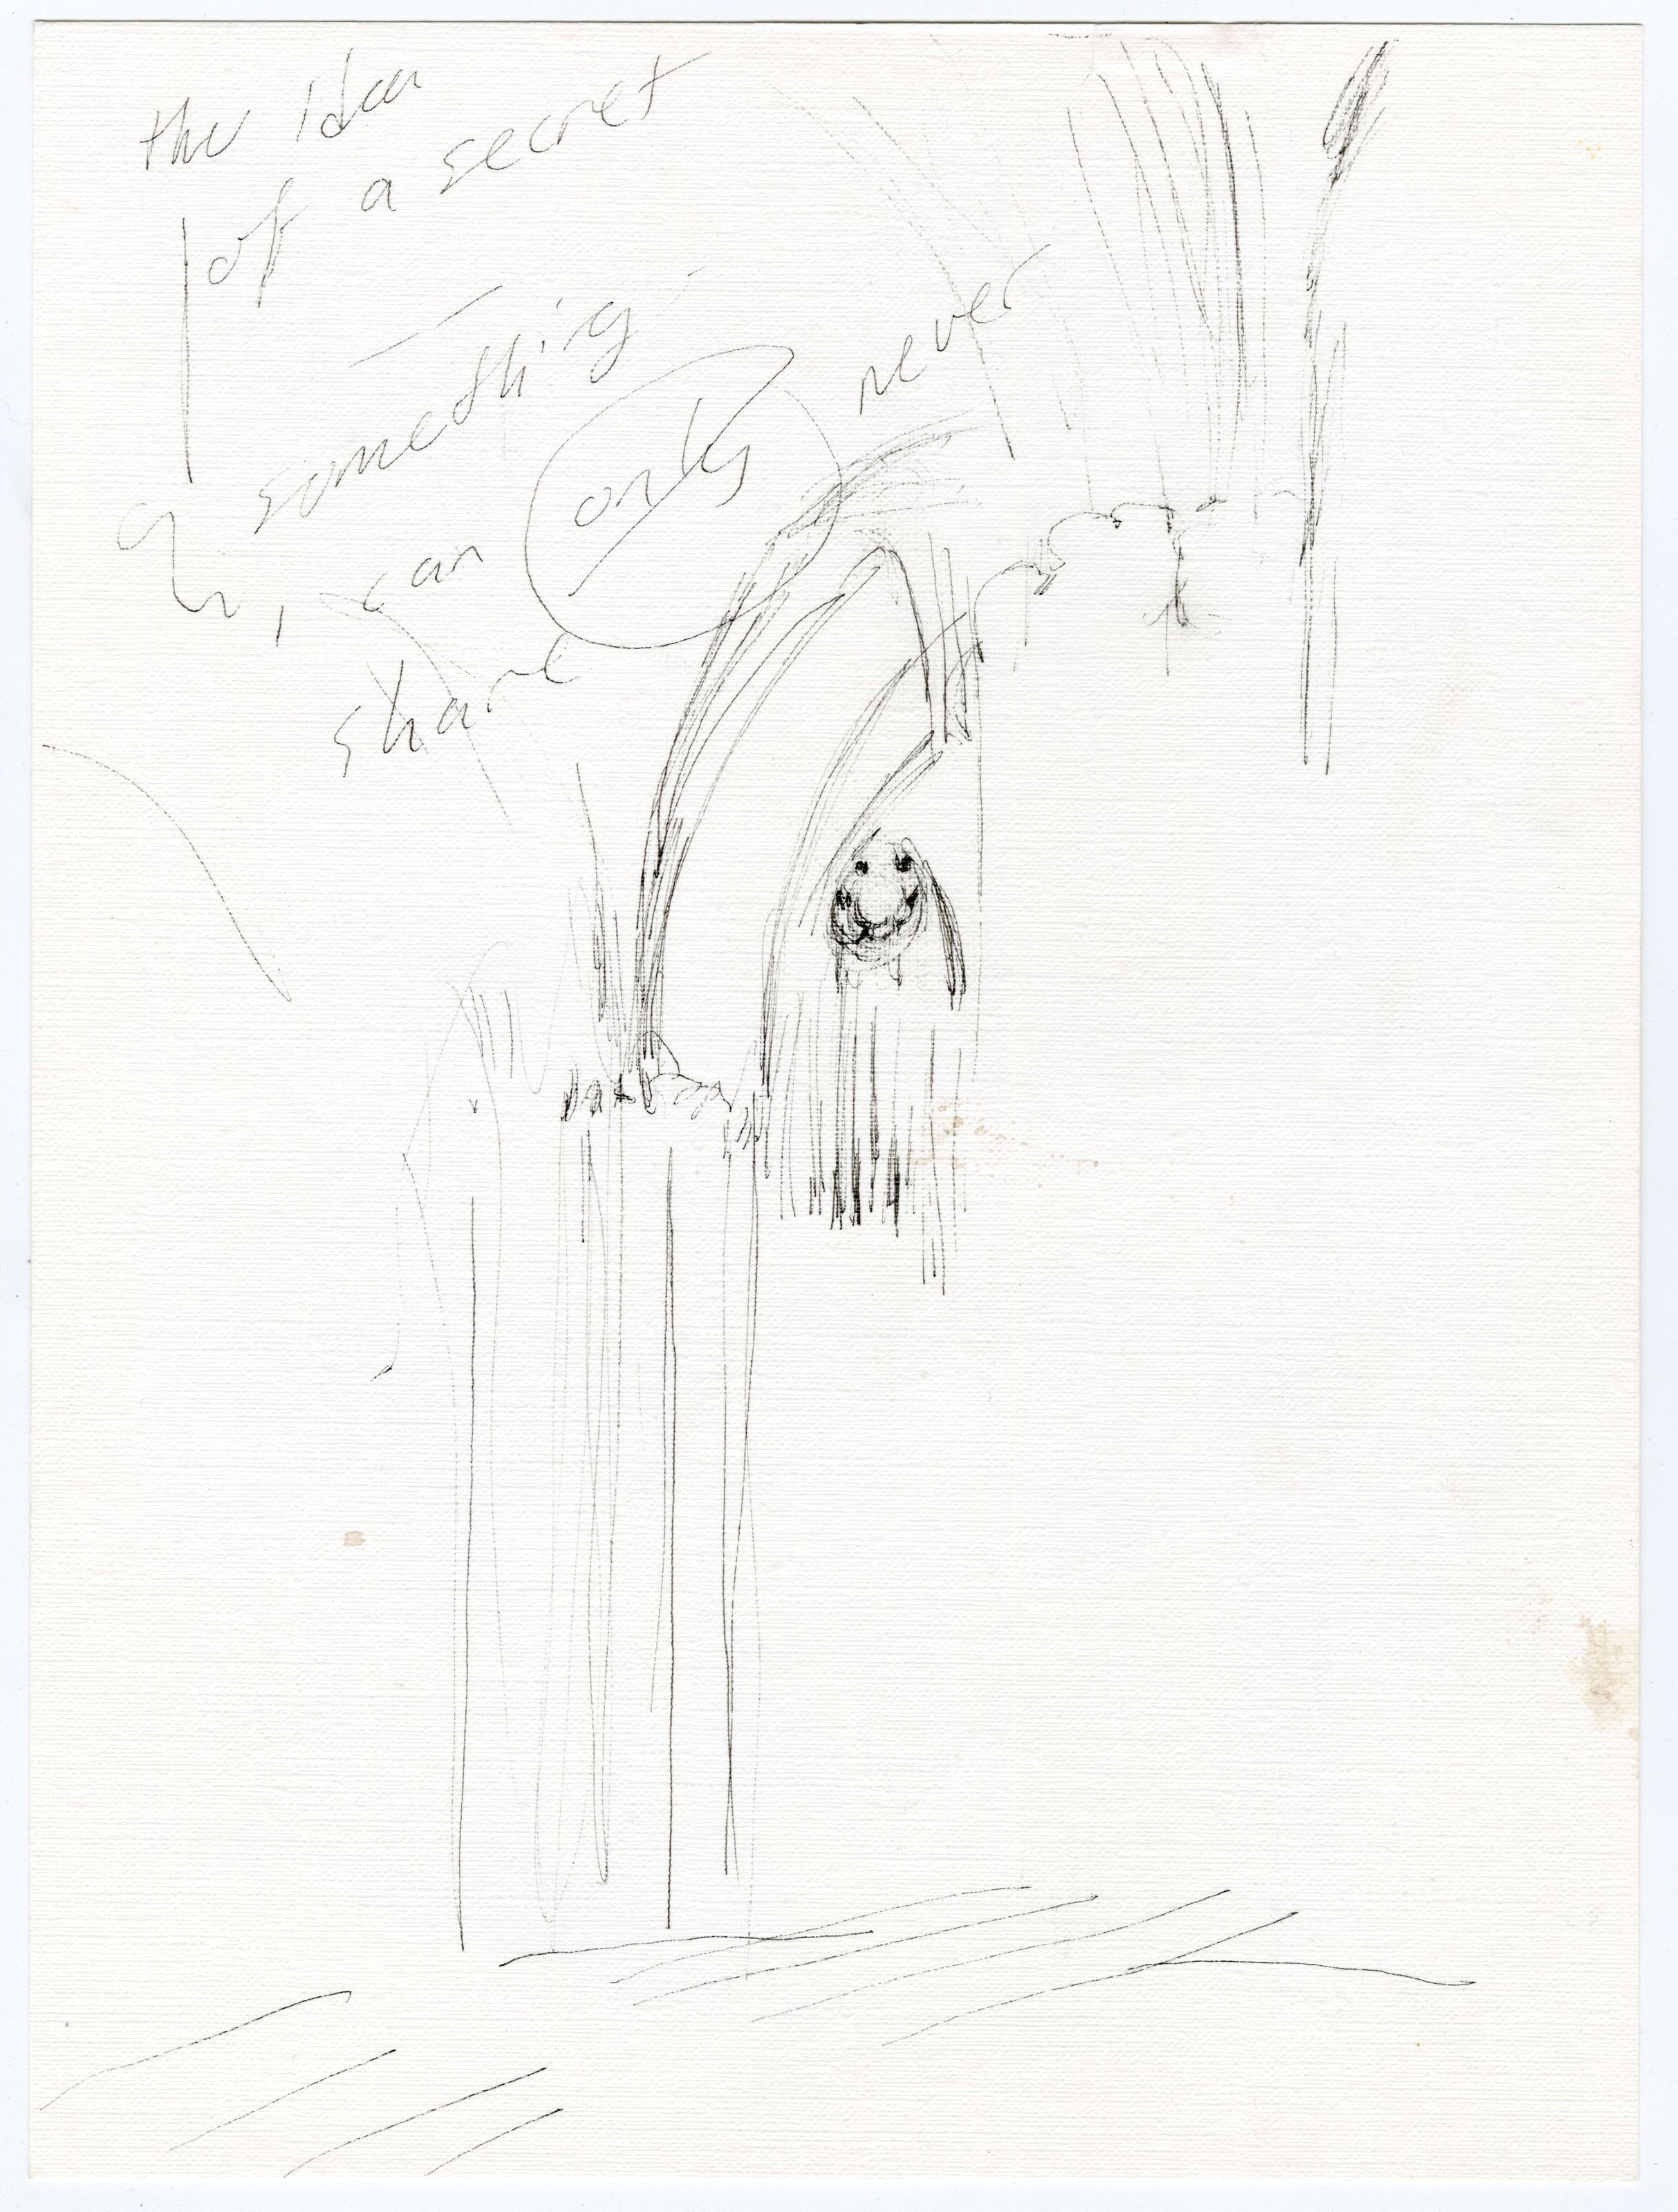 the idea
of a secret
something
I can only never
share